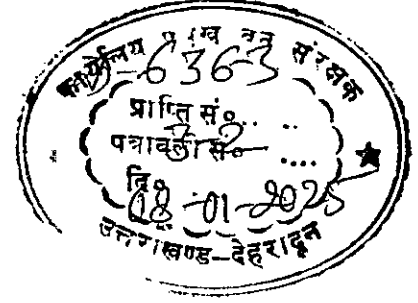 कार्यालय प्रमुख वन संरक्षक
6363
प्राप्ति सं० .. ..
पत्रावली सं० ....
दि०
08-01-2025
उत्तराखण्ड-देहरादून